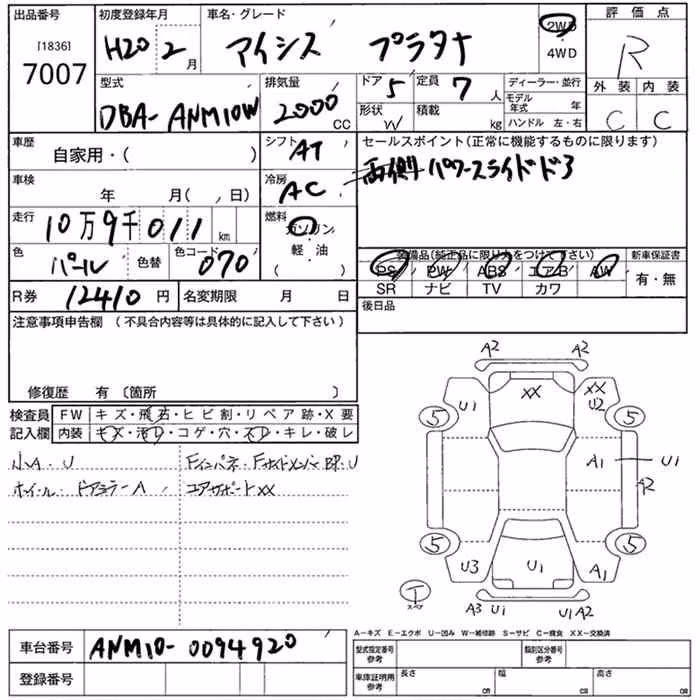 出品番号
[1836]
7007
初度登録年月
H20 2月
車名・グレード
アイシス プラタナ
2WD
4WD
評価点
R
型式
DBA-ANM10W
排気量
2000 CC
ドア 5
定員 7人
形状 W
積載 kg
ディーラー・並行
モデル年式 年
ハンドル 左・右
外装 内装
C C
車歴
自家用・( )
シフト AT
セールスポイント(正常に機能するものに限ります)
両側パワースライドドア
車検
年 月( 、日)
冷房 AC
走行
10万9千011 km
燃料
ガソリン
軽・油
( )
色
パール
色替
色コード
070
装備品(純正品に限り丸をつけて下さい)
新車保証書
PS PW ABS エアB AW
SR ナビ TV カワ
有・無
R券 12410円
名変期限 月 日
後日品
注意事項申告欄 (不具合内容等は具体的に記入して下さい)
修復歴 有 〔箇所 〕
検査員
記入欄
FW キズ・飛石・ヒビ割・リペア跡・X要
内装 キズ・汚レ・コゲ・穴・スレ・キレ・破レ
小A.U
Fインパネ・FサイドメンバーBP.U
ホイール・ドアミラーA
コアサポートXX
A2 A2
U1 XX XX U2
5 5
A1 U1
A2
5 5
U3 U1 A1
T
スペア
A3 U1 U1 A2
A-キズ E-エクボ U-凹み W-補修跡 S-サビ C-腐食 XX-交換済
車台番号
ANM10-0094920
登録番号
型式指定番号
参考
類別区分番号
参考
車庫証明用
参考
長さ CM
幅 CM
高さ CM